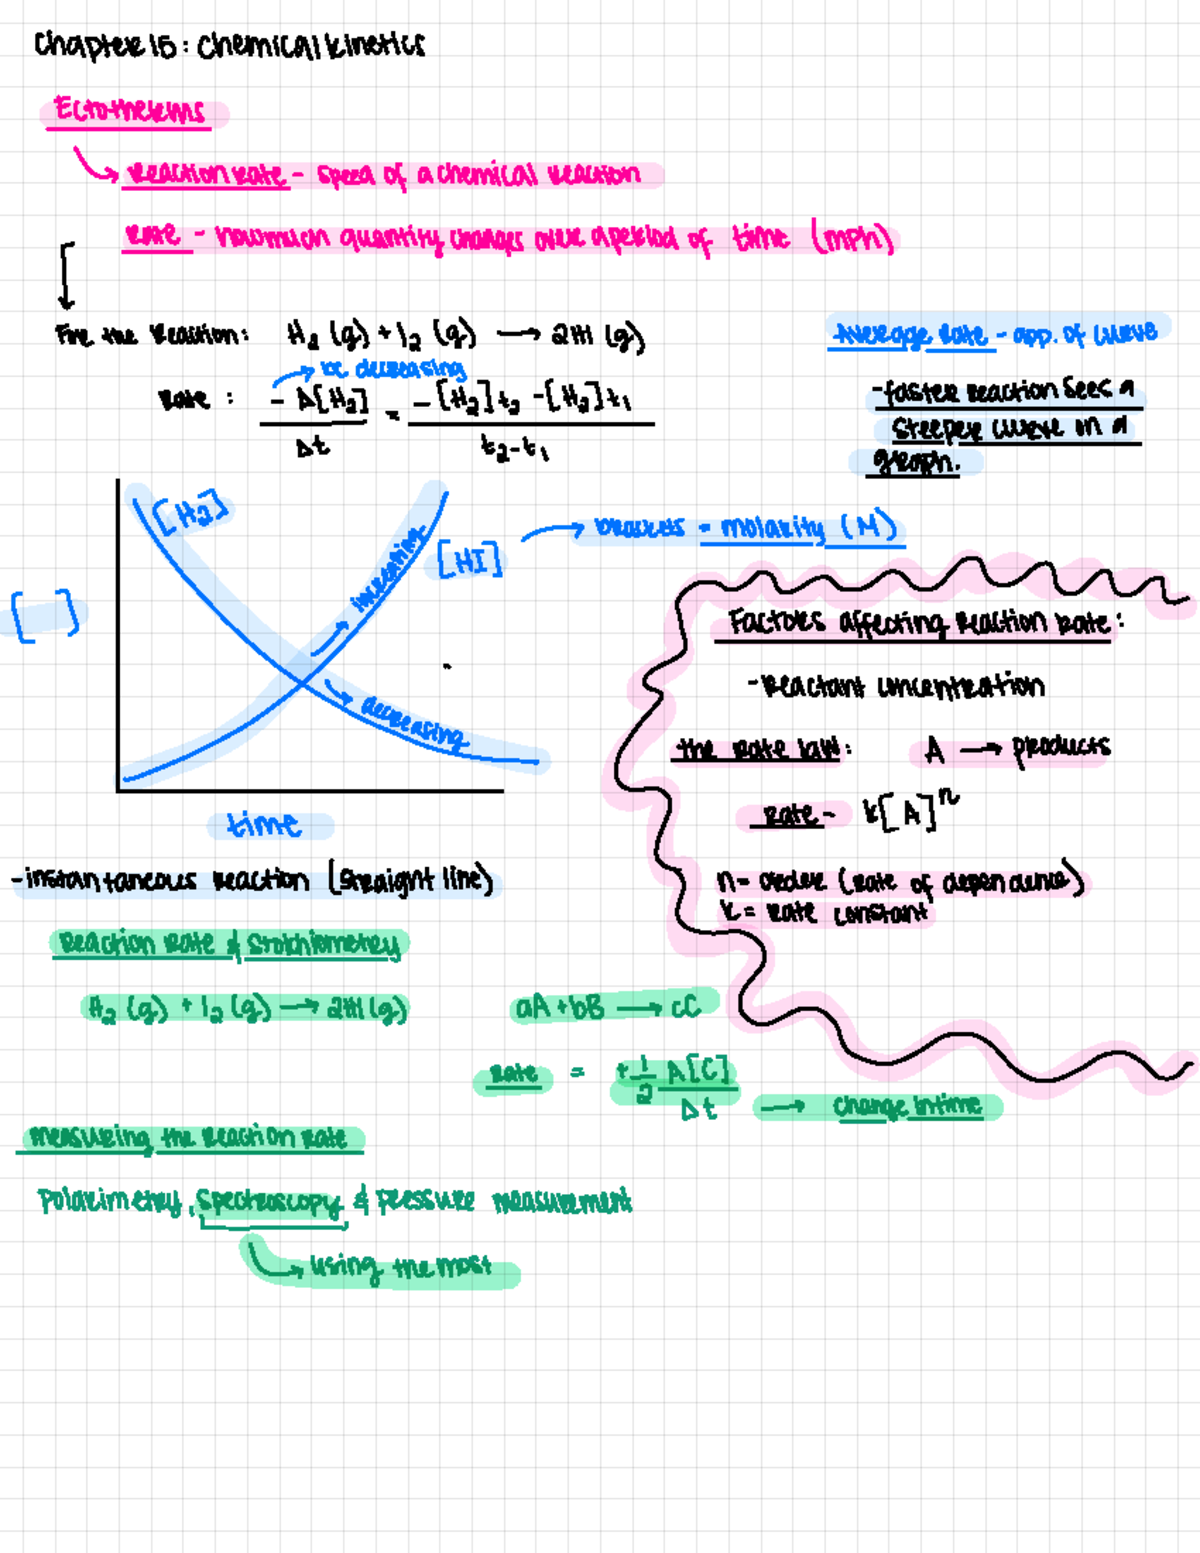 Chapter 15: Chemical kinetics
Ectotherms
Reaction Rate - speed of a chemical reaction
Rate - how much quantity changes over a period of time (mph)
For the Reaction: H₂ (g) + I₂ (g) → 2HI (g)
be decreasing
Rate : - Δ[H₂] / Δt = - [H₂]t₂ - [H₂]t₁ / t₂-t₁
Average Rate - app. of curve
-faster reaction sees a
steeper curve in a
graph.
[H₂]
increasing
[HI]
brackets = molarity (M)
[ ]
decreasing
time
Factors affecting Reaction Rate:
-Reactant concentration
the Rate law: A → products
Rate - k[A]ⁿ
n= order (rate of dependence)
k = Rate constant
-instantaneous reaction (straight line)
Reaction Rate & Stoichiometry
H₂ (g) + I₂ (g) → 2HI (g)
aA + bB → cC
Rate = +1/2 Δ[C] / Δt → change in time
measuring the reaction rate
Polarimetry, Spectroscopy & pressure measurement
using the most